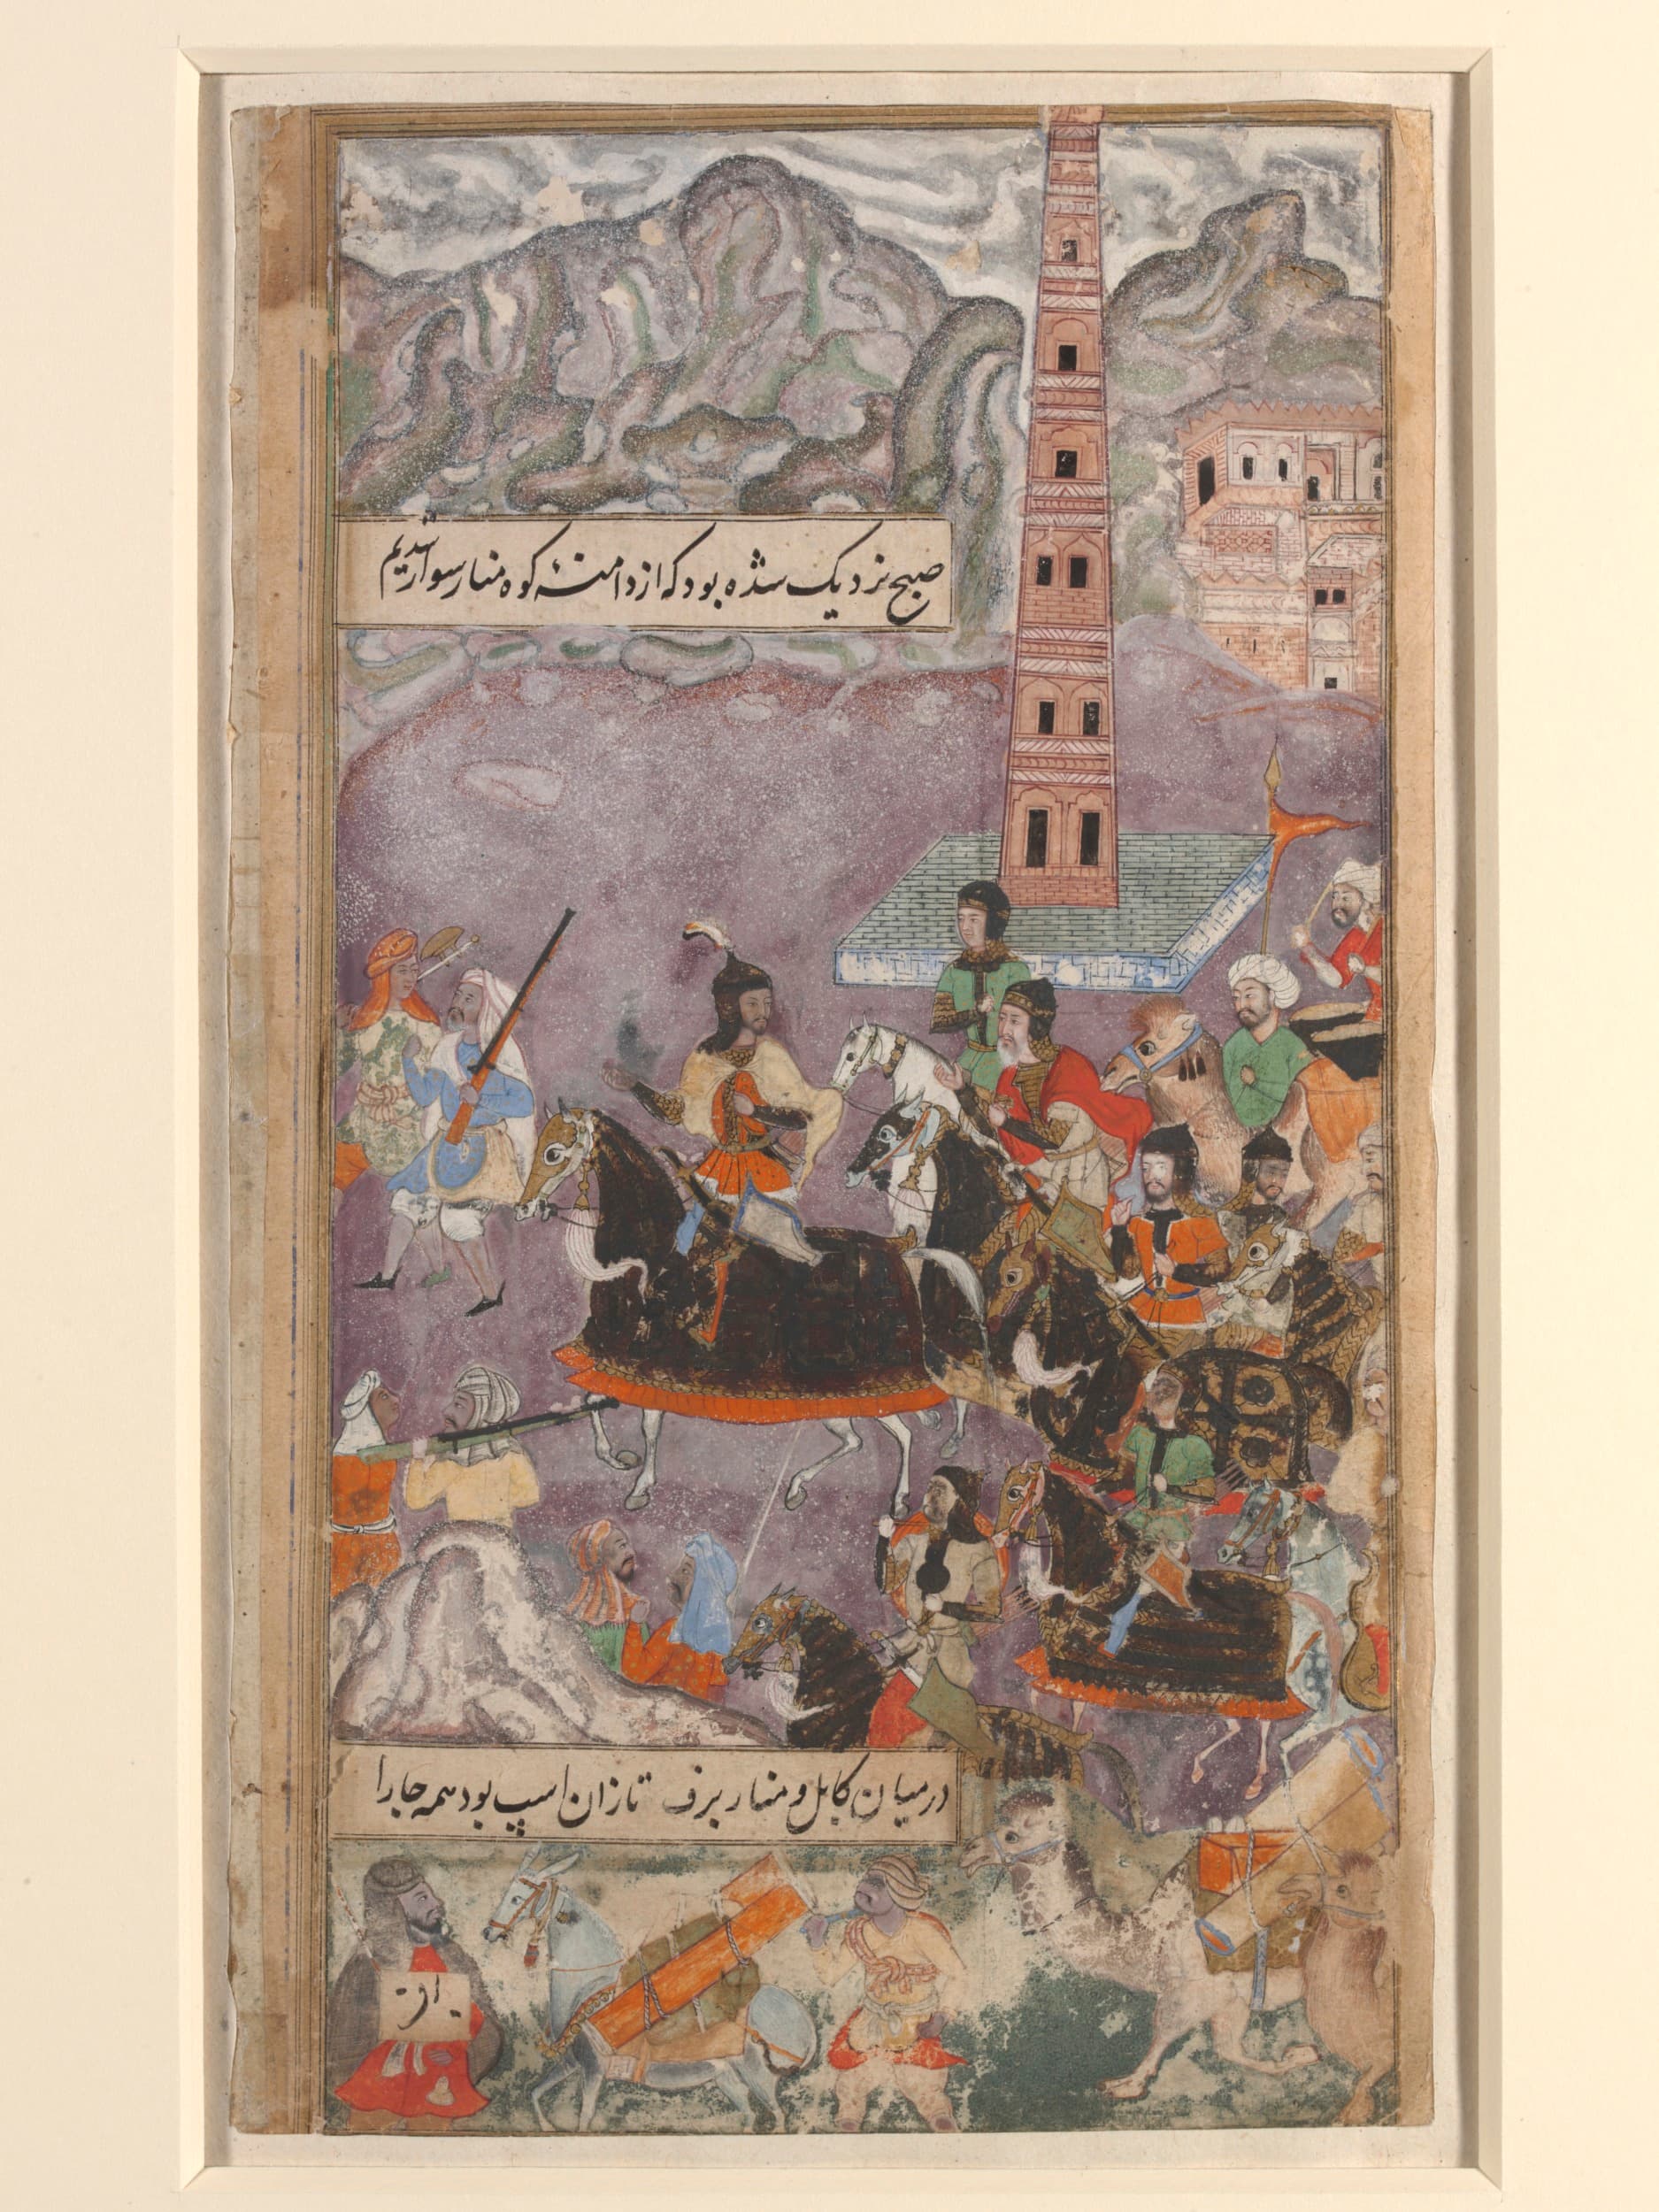 صبح نزدیک شده بود که از دامنهٔ کوه منار سوار شدیم
درمیان کابل و منار برف تا ران اسپ بود همه جا را